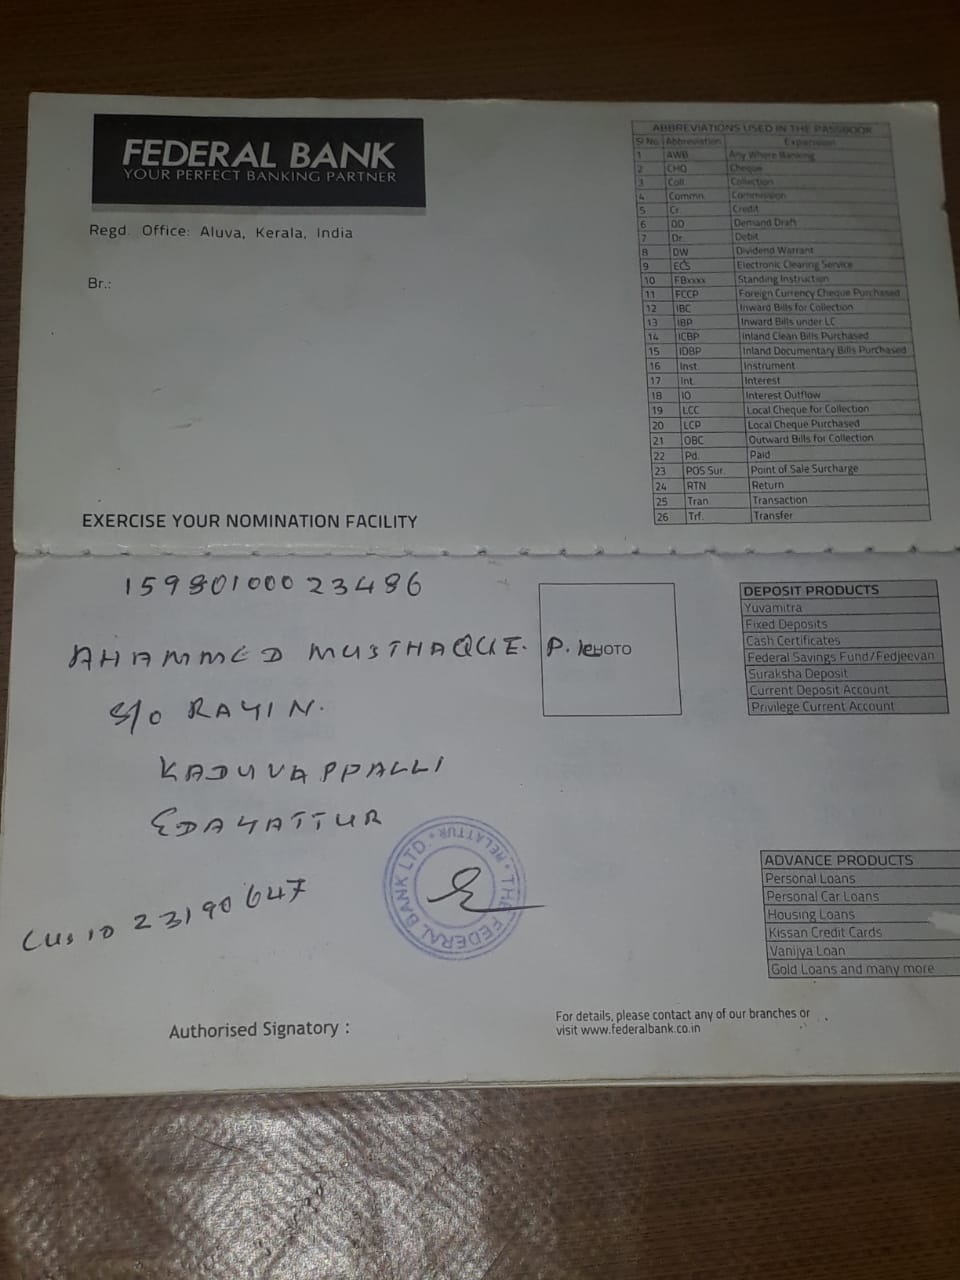 FEDERAL BANK
YOUR PERFECT BANKING PARTNER
Regd. Office: Aluva, Kerala, India
Br.:
EXERCISE YOUR NOMINATION FACILITY
ABBREVIATIONS USED IN THE PASSBOOK
Sl No. Abbreviation Expansion
1 AWB Any Where Banking
2 CHQ Cheque
3 Coll. Collection
4 Commn. Commission
5 Cr. Credit
6 DD Demand Draft
7 Dr. Debit
8 DW Dividend Warrant
9 ECS Electronic Clearing Service
10 FBxxxx Standing Instruction
11 FCCP Foreign Currency Cheque Purchased
12 IBC Inward Bills for Collection
13 IBP Inward Bills under LC
14 ICBP Inland Clean Bills Purchased
15 IDBP Inland Documentary Bills Purchased
16 Inst. Instrument
17 Int. Interest
18 IO Interest Outflow
19 LCC Local Cheque for Collection
20 LCP Local Cheque Purchased
21 OBC Outward Bills for Collection
22 Pd. Paid
23 POS Sur. Point of Sale Surcharge
24 RTN Return
25 Tran. Transaction
26 Trf. Transfer
15980100023486
AHAMMED MUSTHAQUE. P.
S/o RAYIN.
KADUVAPPALLI
EDAYATTUR
Cus ID 23190647
PHOTO
THE FEDERAL BANK LTD. * MELATTUR *
Authorised Signatory :
DEPOSIT PRODUCTS
Yuvamitra
Fixed Deposits
Cash Certificates
Federal Savings Fund/Fedjeevan
Suraksha Deposit
Current Deposit Account
Privilege Current Account
ADVANCE PRODUCTS
Personal Loans
Personal Car Loans
Housing Loans
Kissan Credit Cards
Vanijya Loan
Gold Loans and many more
For details, please contact any of our branches or
visit www.federalbank.co.in